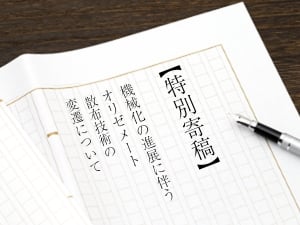 【特別寄稿】
機械化の進展に伴う
オリゼメート
散布技術の
変遷について